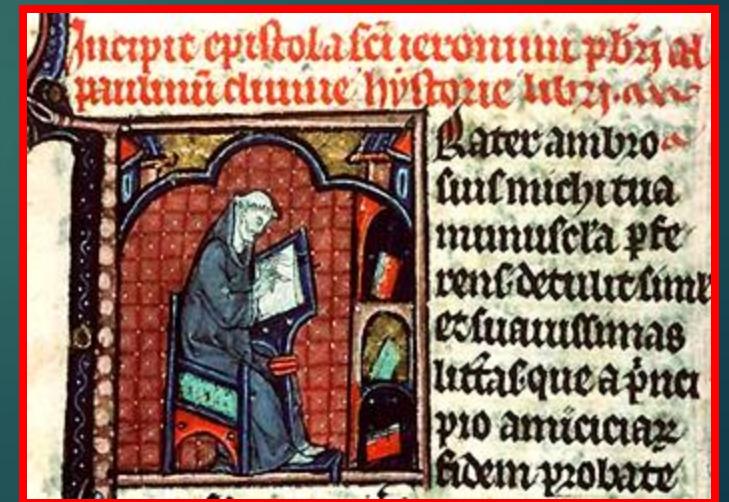 Incipit epistola sci ieronimi pbri ad
paulinū diuine hystorie libri.
Rater ambro
sius michi tua
munuscla pfe
rens detulit simł
et suauissimas
litt̄as que a pnci
pio amiciciaꝝ
fidem probate